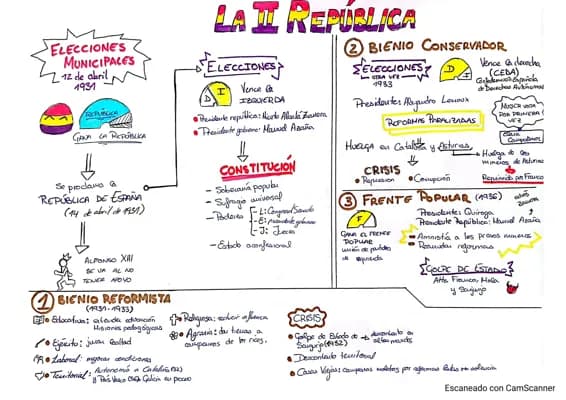 LA II REPÚBLICA
ELECCIONES
MUNICIPALES
12 de abril
1931
REPÚBLICA
GANA LA REPÚBLICA
Se proclama la
REPÚBLICA DE ESPAÑA
(14 de abril de 1931)
ALFONSO XIII
SE VA AL NO
TENER APOYO
ELECCIONES
D I
Vence la
IZQUIERDA
Presidente república: Niceto Alcalá Zamora
Presidente gobierno: Manuel Azaña
CONSTITUCIÓN
- Soberanía popular
- Sufragio universal
- Poderes
- L: Congreso
- E:
- J: Jueces
- Estado aconfesional
② BIENIO CONSERVADOR
ELECCIONES
OTRA VEZ
1933
D I
Vence la derecha
(CEDA)
Confederación Española
de Derechas Autónomas
Presidente: Alejandro Lerroux
REFORMAS PARALIZADAS
MUJER VOTA
POR PRIMERA
VEZ
CLARA
CAMPOAMOR
HUELGA en Cataluña y Asturias
Huelga de los
mineros de Asturias
Reprimida por Franco
CRISIS
• Represión • Corrupción
③ FRENTE POPULAR (1936)
F
GANA EL FRENTE
POPULAR
unión de partidos
de izquierda
Presidente: Quiroga
Presidente República: Manuel Azaña
- Amnistía a los presos mineros
- Reanudan reformas
GOLPE DE ESTADO
Franco, Mola
y Sanjurjo
1 BIENIO REFORMISTA
(1931-1933)
Educativas: extender educación
Misiones pedagógicas
Ejército: juran lealtad
Laboral: mejorar condiciones
Territorial: Autonomía a Cataluña
y País Vasco Galicia en proceso
Religiosa: reducir influencia
Agraria: dar tierras a
campesinos de los ricos.
CRISIS
• Golpe de Estado de
Sanjurjo (1932)
descontento en
altos mandos
• Descontento territorial
• Casas Viejas: campesinos
Escaneado con CamScanner